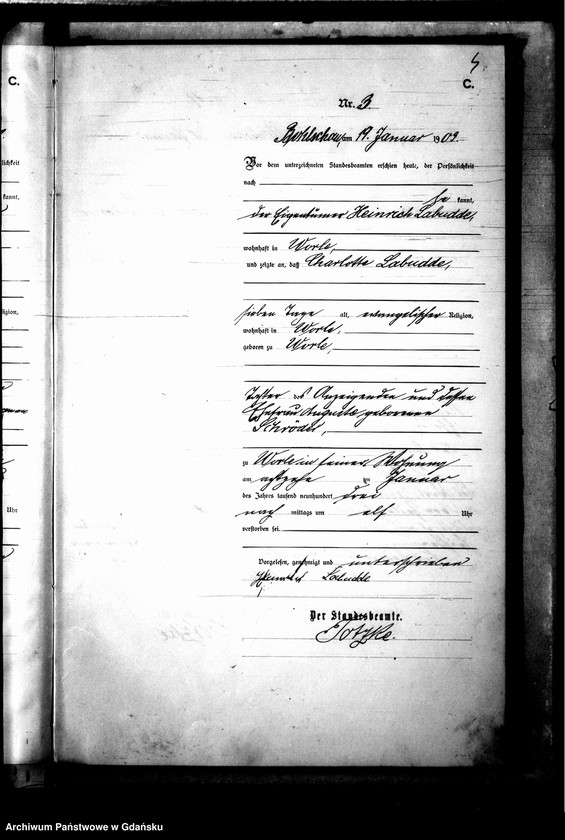 C.
C.
Nr. 3.
am 19. Januar 1909.
Vor dem unterzeichneten Standesbeamten erschien heute, der Persönlichkeit
nach
be kannt,
der Eigentümer Heinrich Labudde,
wohnhaft in Worle,
und zeigte an, daß Charlotte Labudde,
sieben Tage alt, evangelischer Religion,
wohnhaft in Worle,
geboren zu Worle,
Tochter des Anzeigenden und dessen
Ehefrau Auguste geborenen
Schröder,
zu Worle in seiner Wohnung
am achtzehn ten Januar
des Jahres tausend neunhundert drei
nach mittags um elf Uhr
verstorben sei.
Vorgelesen, genehmigt und unterschrieben
Heinrich Labudde
Der Standesbeamte.
lichkeit
kannt,
ligion,
Uhr
Archiwum Państwowe w Gdańsku